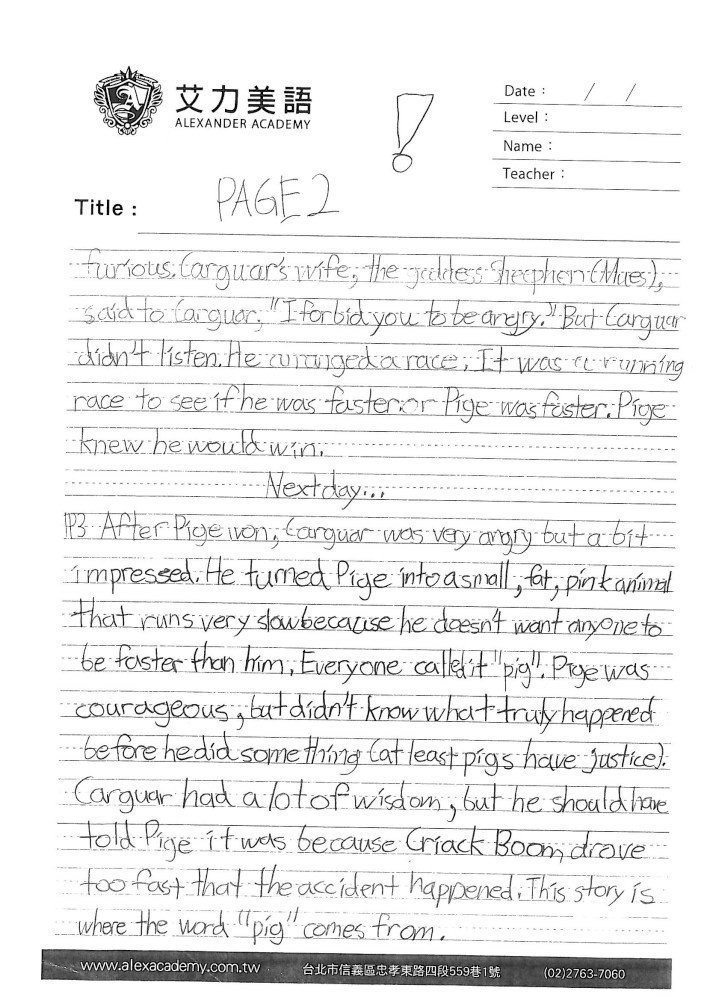 艾力美語
ALEXANDER ACADEMY
!
Date : / /
Level :
Name :
Teacher :
Title : PAGE2
furious. Carguar's wife, the goddess Sheephen (Maes),
said to Carguar, "I forbid you to be angry." But Carguar
didn't listen. He arranged a race. It was a running
race to see if he was faster or Pige was faster. Pige
knew he would win.
Next day...
P3 After Pige won, Carguar was very angry but a bit
impressed. He turned Pige into a small, fat, pink animal
that runs very slow because he doesn't want anyone to
be faster than him. Everyone called it "pig". Pige was
courageous, but didn't know what truly happened
before he did something (at least pigs have justice).
Carguar had a lot of wisdom, but he should have
told Pige it was because Criack Boom drove
too fast that the accident happened. This story is
where the word "pig" comes from.
www.alexacademy.com.tw 台北市信義區忠孝東路四段559巷1號 (02)2763-7060